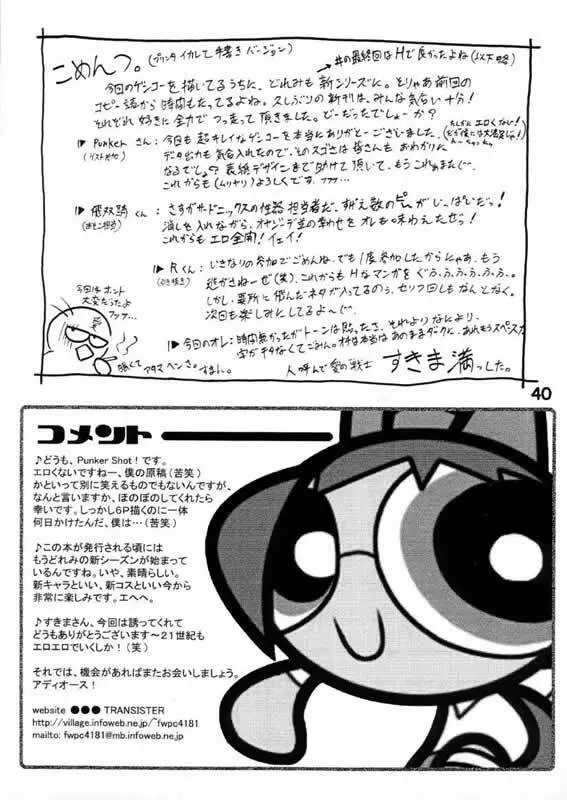 こめんつ。(プリンタイカレて手書きバージョン)
→#の最終回はHで良かったよね(以下略)
今回のゲンコーを描いてるうちに、どれみも新シリーズに。とりゃあ前回の
コピー誌から時間もたってるよね。久しぶりの新刊は、みんな気合い十分!
それぞれ好きに全力でつっ走って頂きました。どーだったでしょーか?
▶Punkerさん:今回も超キレイなゲンコーを本当にありがとーございました。
(ゲスト参加)
データ出力も気合入れたので、そのスゴさは皆さんもおわかりに
なるでしょ?表紙デザインまで助けて頂いて、もうこれまた(…
これからも(ムッチリ)よろしくです。フフフ…
くん:さすがサードニックスの性器担当者だ、
消しを入れながら、オヤジデ並の幸せをオレも味わえたぜっ!
これからもエロ全開!イェイ!
▶Rくん:いきなりの参加でごめんね、でも1度参加したからにゃあ、もう
逃がさねーぜ(笑)これからもHなマンガをぐふ、ふ、ふ、ふ、ふ、ふ。
しかし、要所に悩んだネタが入ってるのう、セリフ回しもなんとなく。
次回も楽しみにしてるよ〜(…
今回はホント
大変だったよ
フフフ…
▶今回のオレ:時間無かったがトーンは貼ったさ、それよりなにより、
人呼んで愛の戦士 すきま満っした。
40
コメント
♪どうも、Punker Shot!です。
エロくないですねー、僕の原稿(苦笑)
かといって別に笑えるものでもないんですが、
なんと言いますか、ほのぼのしてくれたら
幸いです。しっかし6P描くのに一体
何日かけたんだ、僕は…(苦笑)
♪この本が発行される頃には
もうどれみの新シーズンが始まって
いるんですね。いや、素晴らしい。
新キャラといい、新コスといい今から
非常に楽しみです。エヘヘ。
♪すきまさん、今回は誘ってくれて
どうもありがとうございます〜21世紀も
エロエロでいくしか!(笑)
それでは、機会があればまたお会いしましょう。
アディオース!
website ●●● TRANSISTER
http://village.infoweb.ne.jp/~fwpc4181
mailto: fwpc4181@mb.infoweb.ne.jp